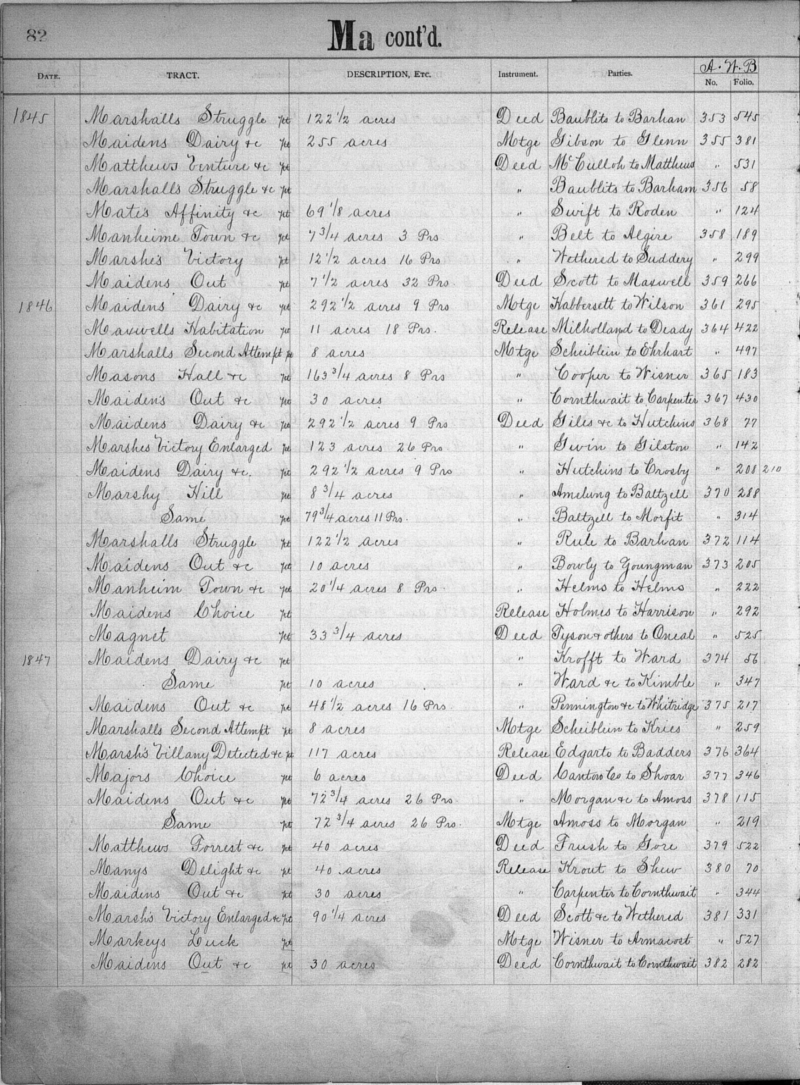 82
Ma cont'd.
A. W. B
DATE. TRACT. DESCRIPTION, ETC. Instrument. Parties. No. Folio.
1845 Marshalls Struggle pt 122 1/2 acres Deed Baublits to Barhan 353 545
Maidens Dairy &c pt 255 acres Mtge Gibson to Glenn 355 381
Matthews Venture &c pt Deed McCulloh to Matthews " 531
Marshalls Struggle &c pt " Baublits to Barham 356 58
Mates Affinity &c pt 69 1/8 acres " Swift to Roden " 124
Manheime Town &c pt 7 3/4 acres 3 Prs " Belt to Algire 358 189
Marshe's Victory pt 12 1/2 acres 16 Prs " Wethered to Suddery " 299
Maidens Out pt 7 1/2 acres 32 Prs. Deed Scott to Maswell 359 266
1846 Maidens Dairy &c pt 292 1/2 acres 9 Prs Mtge Habbersett to Wilson 361 295
Maxwells Habitation pt 11 acres 18 Prs. Release Milholland to Deady 364 422
Marshalls Second Attempt pt 8 acres Mtge Scheiblein to Ehrhart " 497
Masons Hall &c pt 163 3/4 acres 8 Prs " Cooper to Wisner 365 183
Maidens Out &c pt 30 acres " Cornthwait to Carpenter 367 430
Maidens Dairy &c pt 292 1/2 acres 9 Prs Deed Giles &c to Hutchins 368 77
Marshes Victory Enlarged pt 123 acres 26 Prs " Gwin to Gilston " 142
Maidens Dairy &c. pt 292 1/2 acres 9 Prs " Hutchins to Crosby " 208 210
Marshy Hill pt 8 3/4 acres " Amelung to Baltzell 370 288
Same pt 79 3/4 acres 11 Prs. " Baltzell to Morfit " 314
Marshalls Struggle pt 122 1/2 acres " Rule to Barhan 372 114
Maidens Out &c pt 10 acres " Bowly to Youngman 373 205
Manheim Town &c pt 20 1/4 acres 8 Prs. " Helms to Helms " 222
Maidens Choice pt Release Holmes to Harrison " 292
Magnet pt 33 3/4 acres Deed Tyson & others to Oneal " 525
1847 Maidens Dairy &c pt " Krofft to Ward 374 56
Same pt 10 acres " Ward &c to Kimble " 347
Maidens Out &c pt 48 1/2 acres 16 Prs " Pennington &c to Whitridge 375 217
Marshalls Second Attempt pt 8 acres Mtge Scheiblein to Kries " 259
Marsh's Villany Detected &c pt 117 acres Release Edgar to Badders 376 364
Majors Choice pt 6 acres Deed Canton Co to Shoar 377 346
Maidens Out &c pt 72 3/4 acres 26 Prs " Morgan &c to Amoss 378 115
Same pt 72 3/4 acres 26 Prs. Mtge Amoss to Morgan " 219
Matthews Forrest &c pt 40 acres Deed Frush to Gore 379 522
Manys Delight &c pt 40 acres Release Krout to Shew 380 70
Maidens Out &c pt 30 acres " Carpenter to Cornthwait " 344
Marsh's Victory Enlarged &c pt 90 1/4 acres Deed Scott &c to Wethered 381 331
Markeys Luck pt Mtge Wisner to Armacost " 527
Maidens Out &c pt 30 acres Deed Cornthwait to Cornthwait 382 282